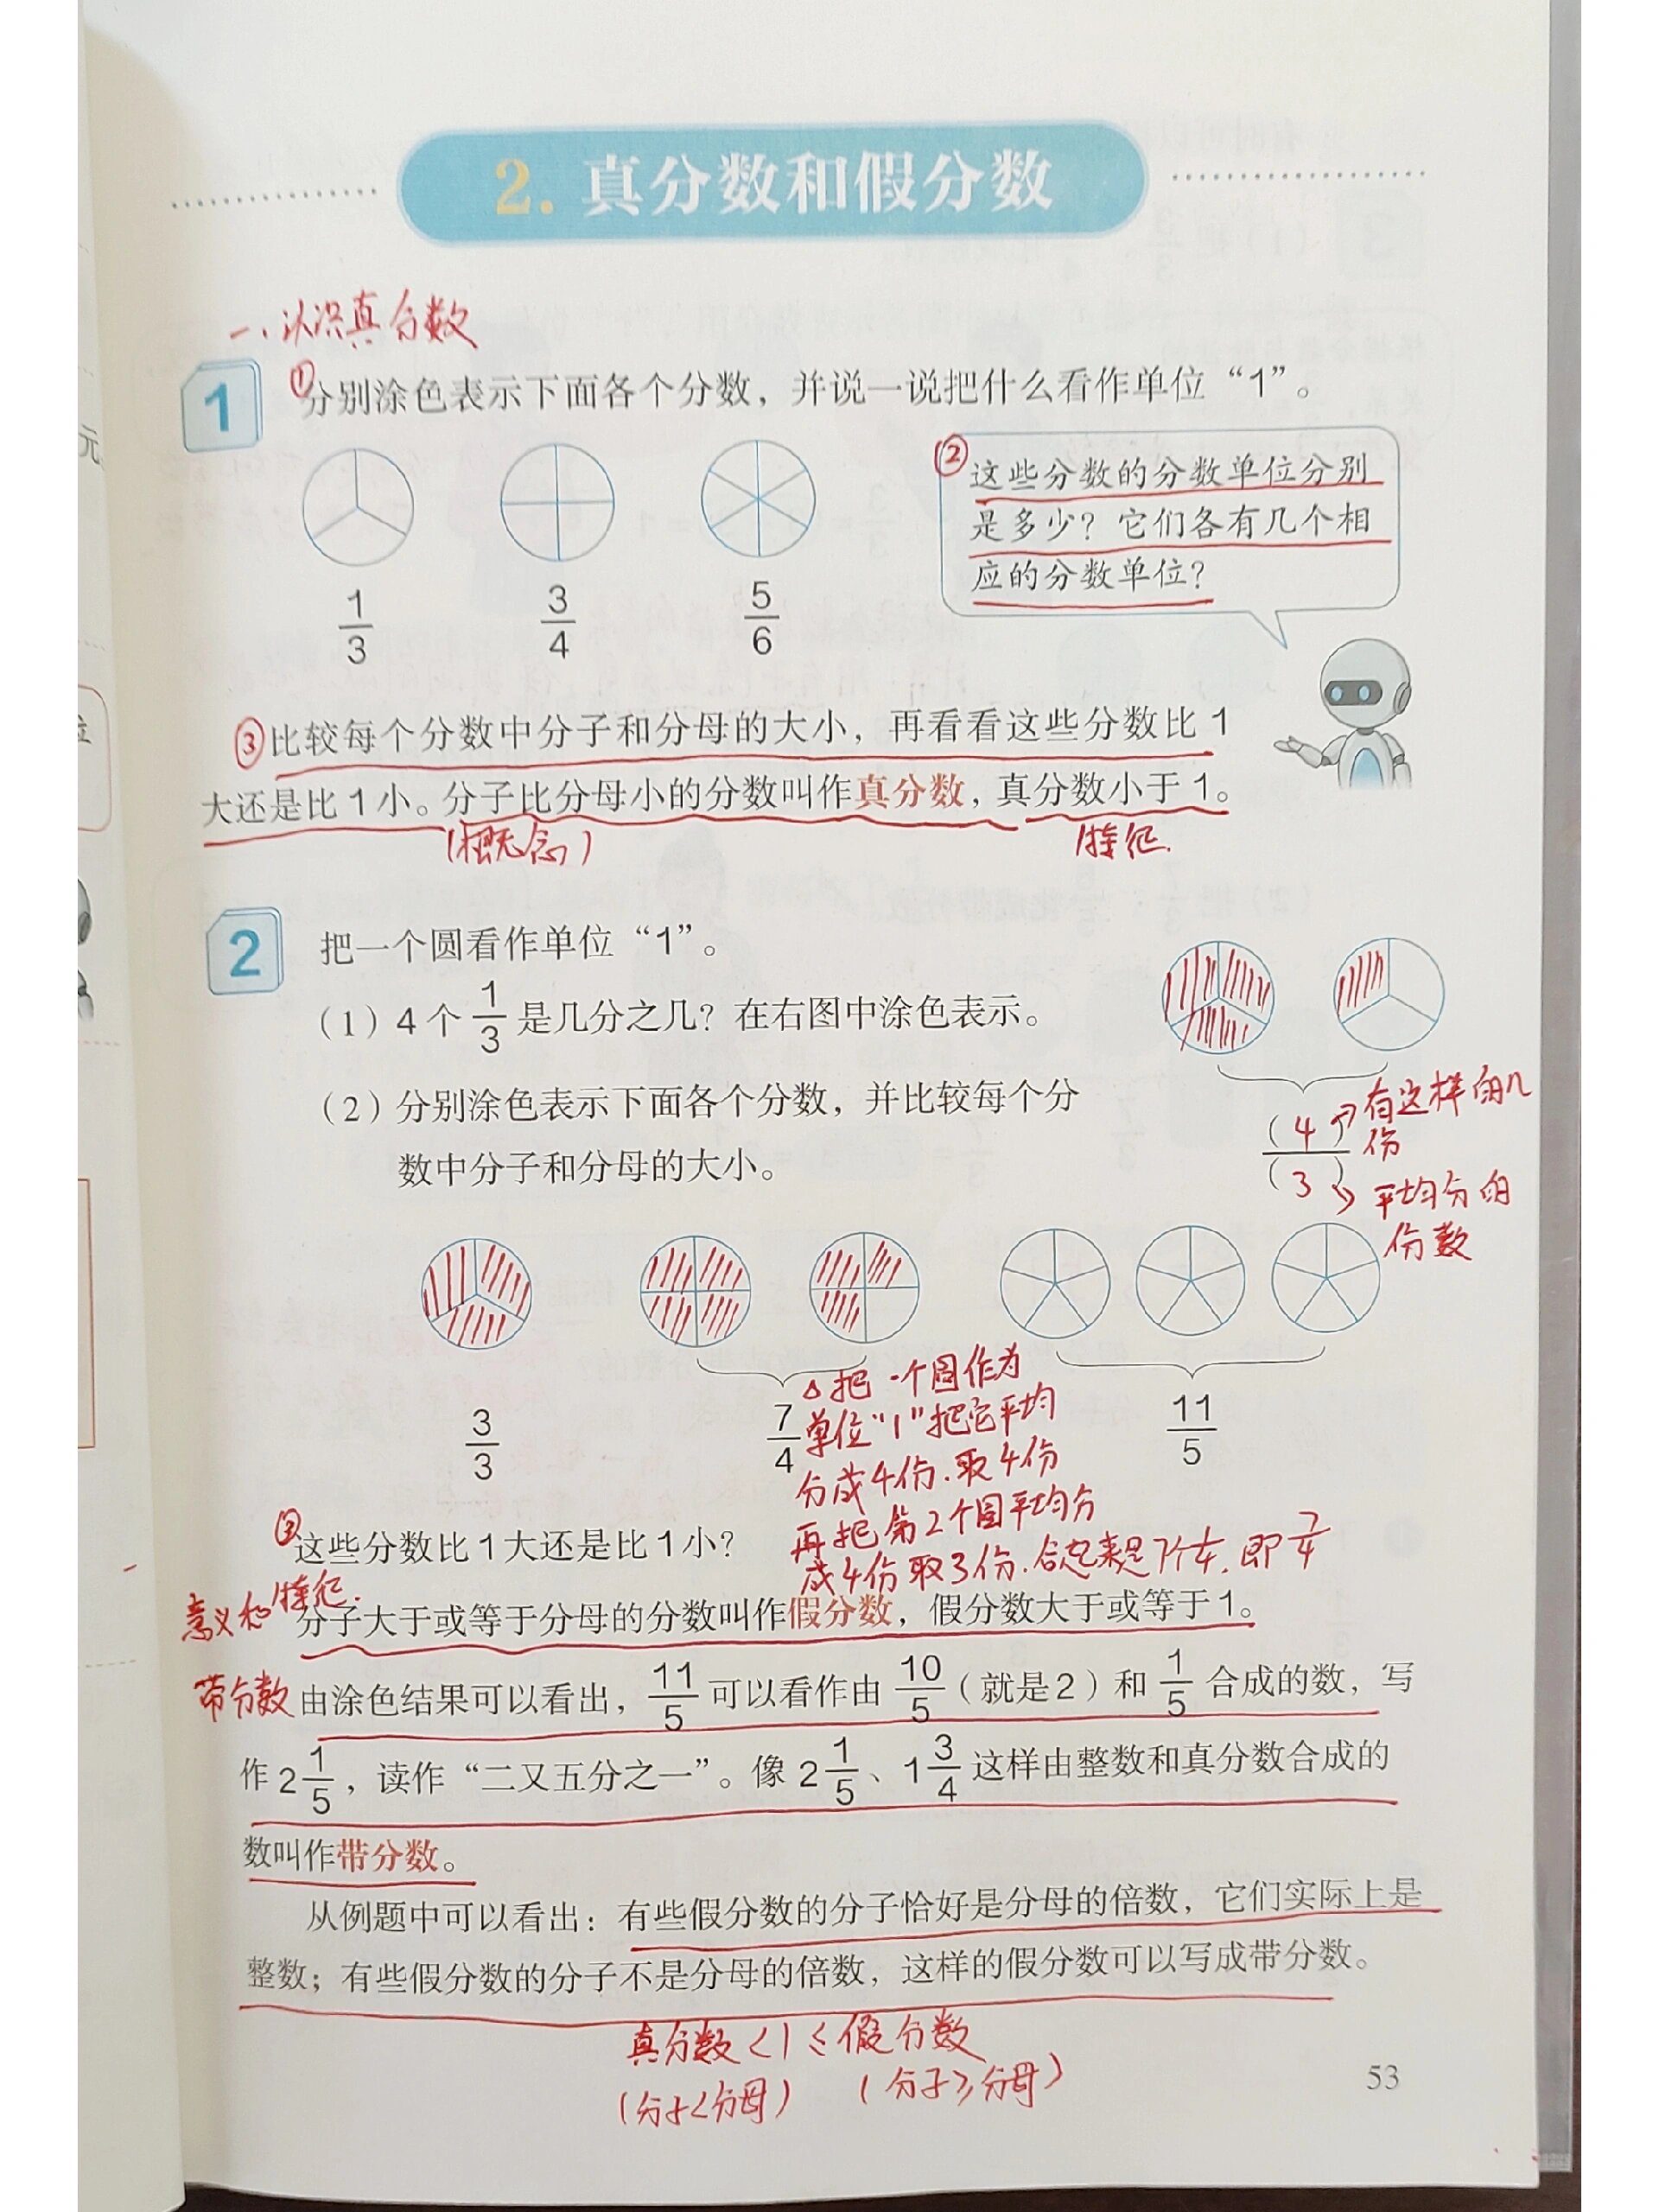 2. 真分数和假分数
一、认识真分数
1 ①分别涂色表示下面各个分数，并说一说把什么看作单位“1”。
②这些分数的分数单位分别
是多少？它们各有几个相
应的分数单位？
1/3 3/4 5/6
③比较每个分数中分子和分母的大小，再看看这些分数比 1
大还是比 1 小。分子比分母小的分数叫作真分数，真分数小于 1。
（概念） 特征.
2 把一个圆看作单位“1”。
（1）4 个 1/3 是几分之几？在右图中涂色表示。
(4)/(3)
有这样的几
份
平均分的
份数
（2）分别涂色表示下面各个分数，并比较每个分
数中分子和分母的大小。
3/3 7/4 11/5
△把一个圆作为
单位“1”把它平均
分成4份.取4份
再把第2个圆平均分
成4份取3份.合起来是7个1/4.即7/4
③这些分数比 1 大还是比 1 小？
意义和特征.
分子大于或等于分母的分数叫作假分数，假分数大于或等于 1。
带分数 由涂色结果可以看出，11/5 可以看作由 10/5（就是2）和 1/5 合成的数，写
作 2 1/5，读作“二又五分之一”。像 2 1/5、1 3/4 这样由整数和真分数合成的
数叫作带分数。
从例题中可以看出：有些假分数的分子恰好是分母的倍数，它们实际上是
整数；有些假分数的分子不是分母的倍数，这样的假分数可以写成带分数。
真分数<1≤假分数
（分子<分母） （分子≥分母）
53
元
位